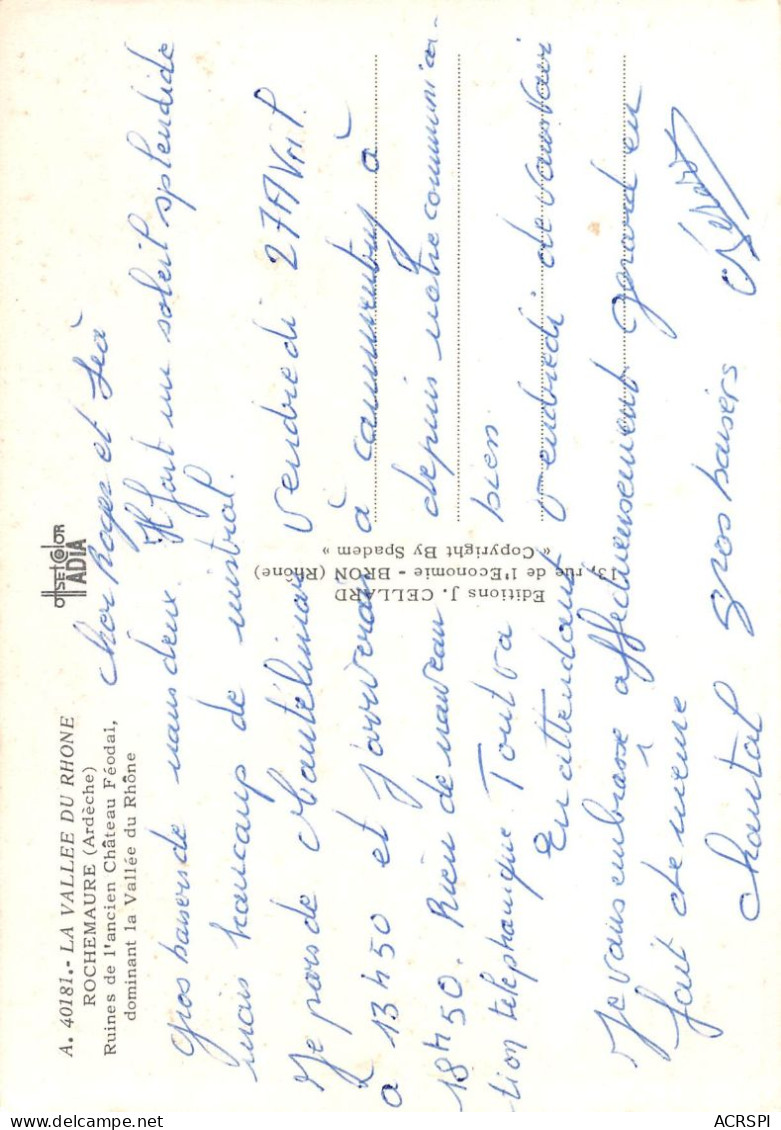 A. 40181.- LA VALLEE DU RHONE
ROCHEMAURE (Ardèche)
Ruines de l'ancien Château Féodal,
dominant la Vallée du Rhône
OFFSET COLOR
ADIA
Cher et
Gros baisers de nous deux. Il fait un soleil splendide
mais beaucoup de mistral.
Je pars de Montélimar vendredi 27 Avril.
à 13h50 et j'arriverai à Commentry à
18h50. Rien de nouveau depuis notre communica-
tion telephonique. Tout va bien
En attendant vendredi de vous voir
Je vous embrasse affectueusement gerard en
fait de meme
Chantal gros baisers
Editions J. CELLARD
13, rue de l'Economie - BRON (Rhône)
« Copyright By Spadem »
ACRSPI